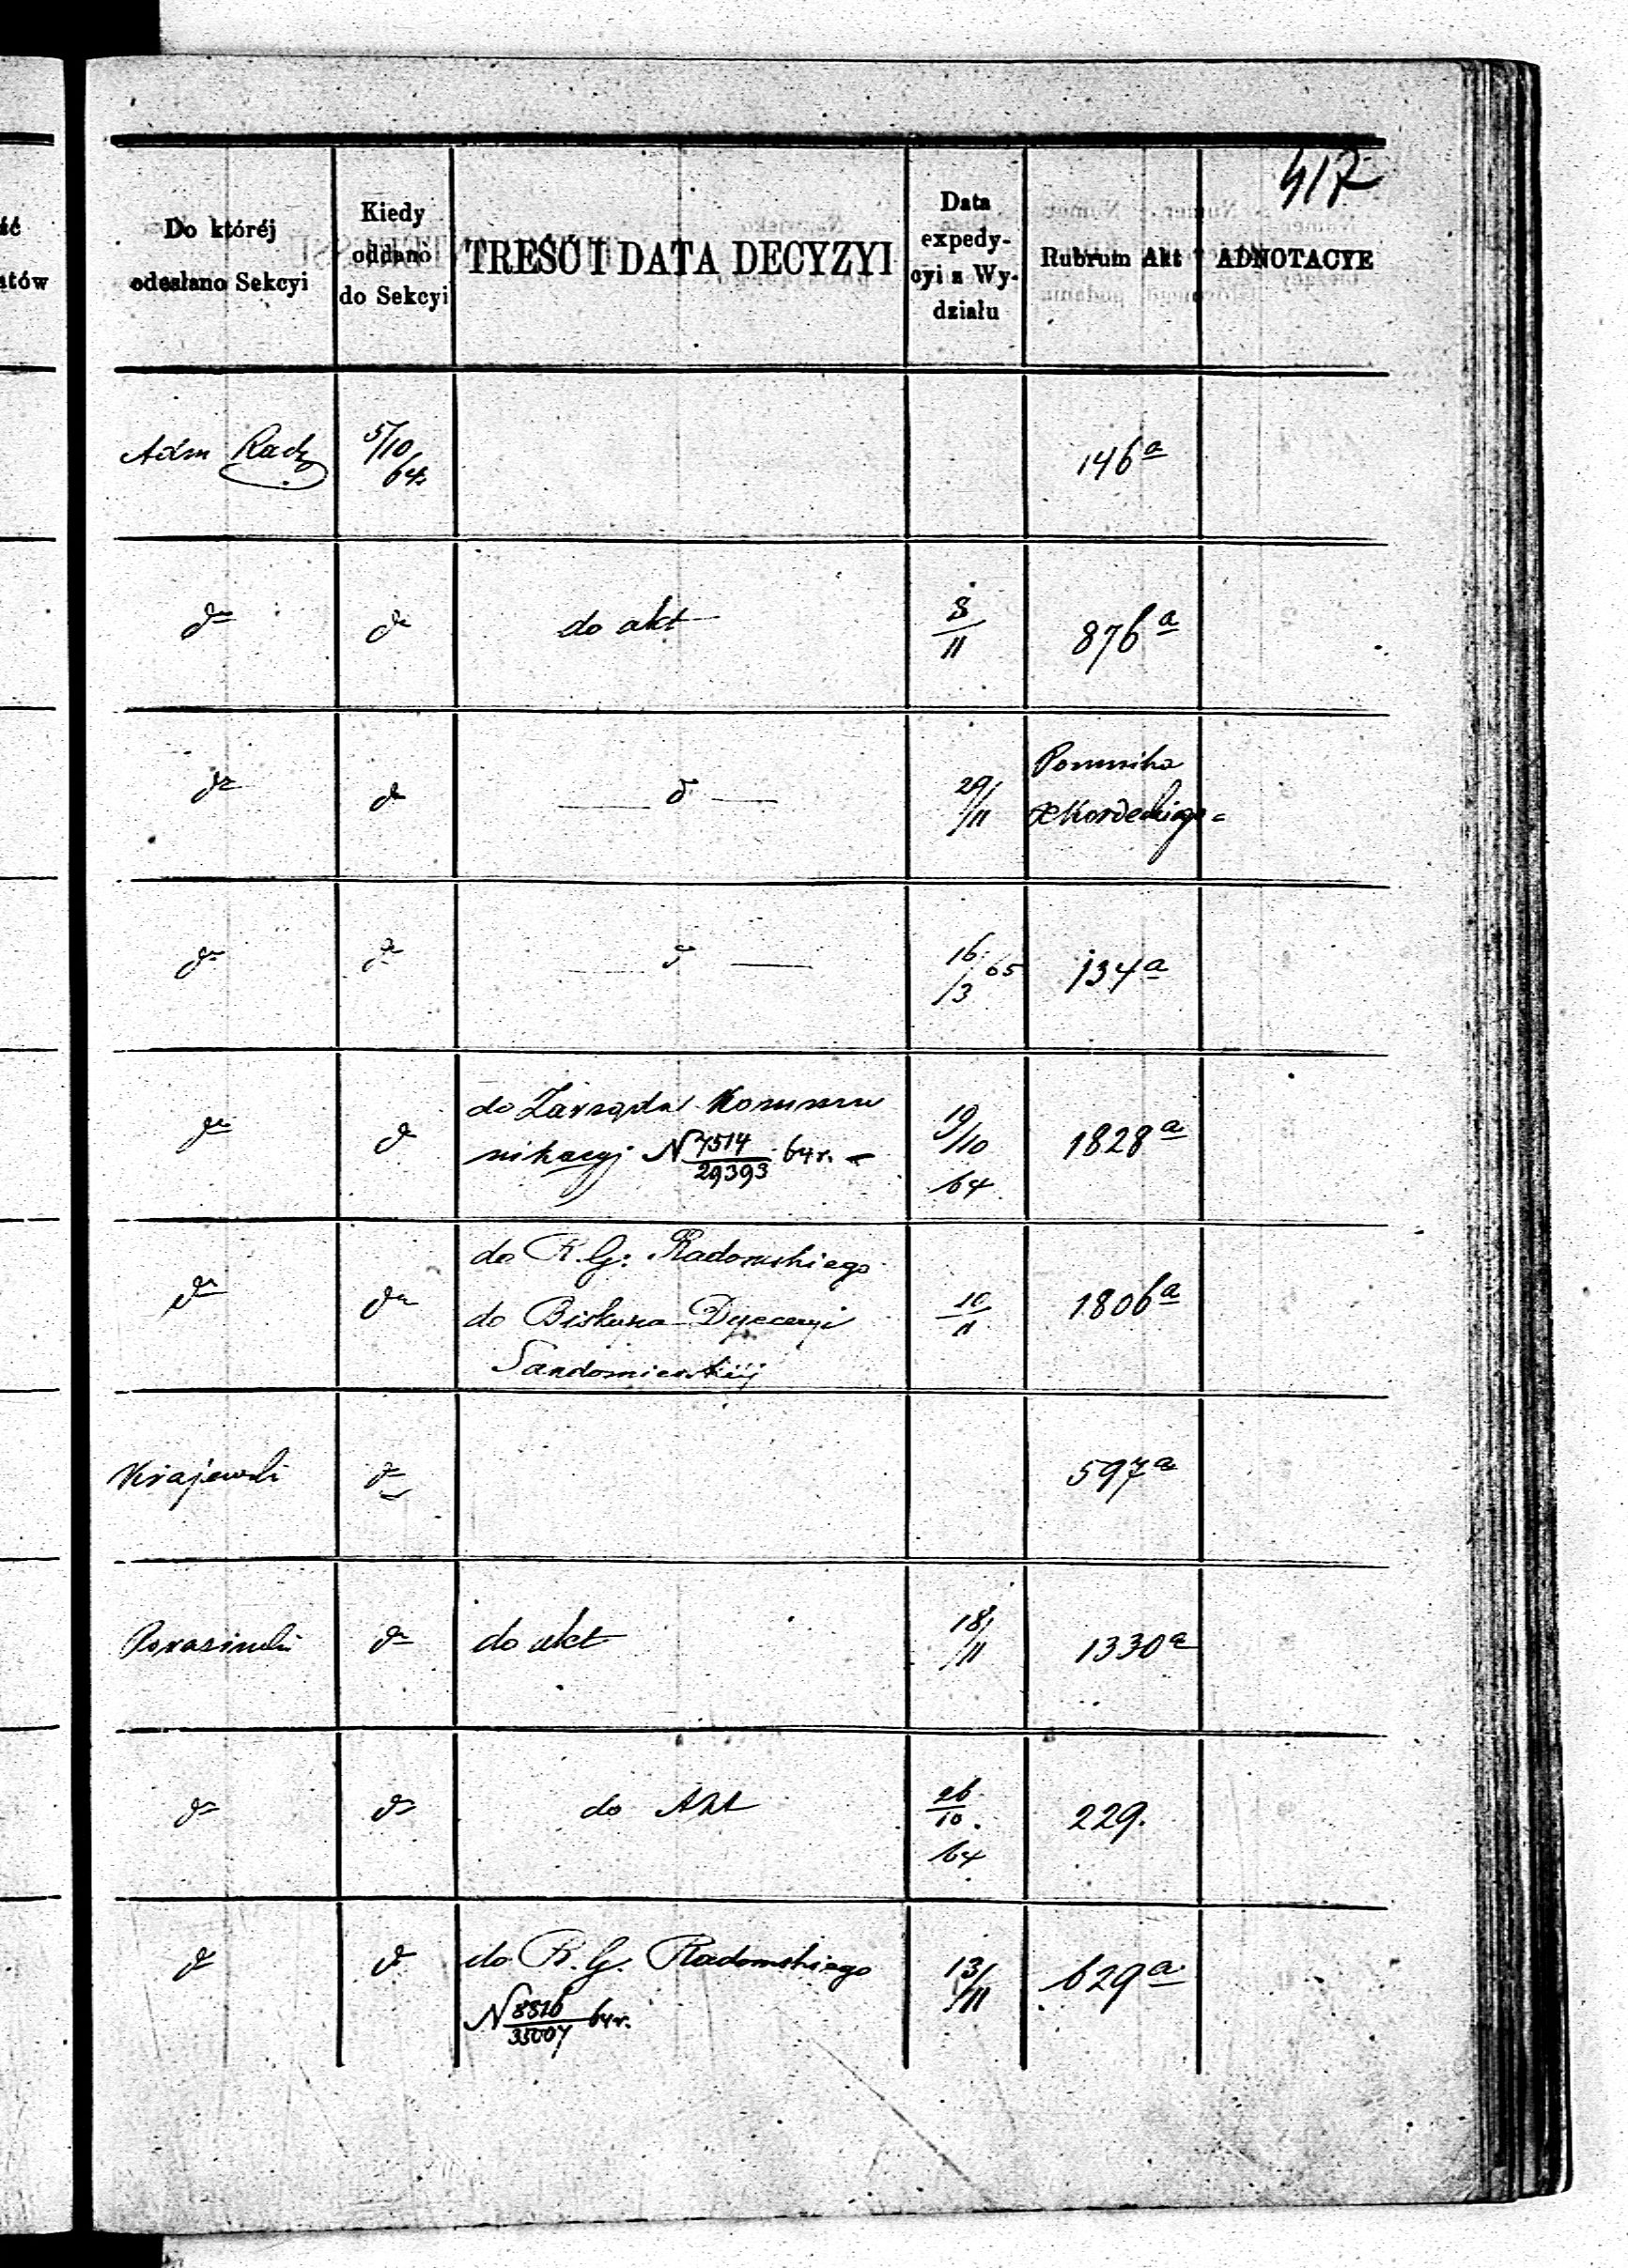 417
ść
atów
Do któréj
odesłano Sekcyi
Kiedy
oddano
do Sekcyi
TREŚĆ I DATA DECYZYI
Data
expedy-
cyi z Wy-
działu
Rubrum Akt
ADNOTACYE
Adm Radz 5/10 64 146a
do do do akt 8/11 876a
do do do 29/11 Pomnika
X Kordeckiego
do do do 16/3 65 134a
do do do Zarządu Kommu
nikacyj N 7514/29393 64 r. 19/10 64 1828a
do do do R. G. Radomskiego
do Biskupa Dyecezyi 10/11 1806a
Sandomierskiéj
Krajewski do 597a
do do akt 18/11 1330a
do do do Akt 26/10 64 229.
do do do R. G. Radomskiego 13/11 629a
N 8516/35007 64 r.